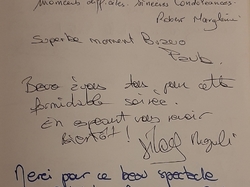 moments difficiles. Sincères Condoléances.
Superbe moment Bravo
Bravo à vous tous, pour cette
formidable soirée.
En espérant vous revoir
bientôt!
Merci pour ce beau spectacle